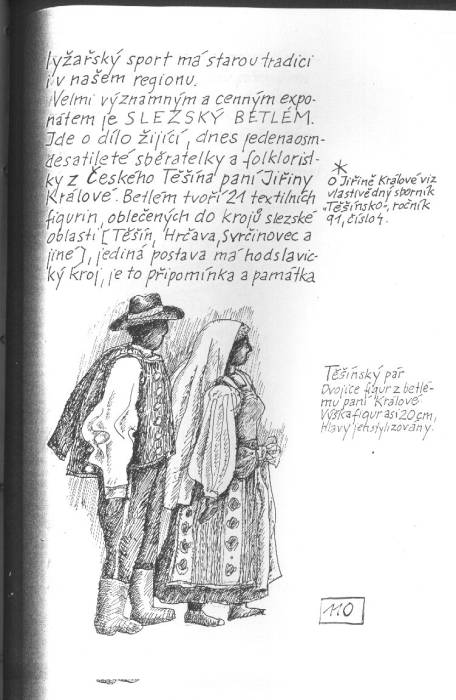 lyžařský sport má starou tradici
i v našem regionu.
Velmi významným a cenným expo-
nátem je SLEZSKÝ BETLÉM.
Jde o dílo žijící, dnes jedenaosm-
desatileté sběratelky a folklorist-
ky z Českého Těšína paní Jiřiny
Králové. Betlem tvoří 21 textilních
figurin, oblečených do krojů slezské
oblasti [Těšín, Hrčava, Svrčinovec a
jiné], jediná postava má hodslavic-
cký kroj, je to připomínka a památka
*
O Jiřině Králové viz
vlastivědný sborník
"Těšínsko", ročník
91, číslo 4.
Těšínský pár
Dvojice figur z betlé-
mu paní Králové
Výška figur asi 20 cm,
Hlavy jen stylizovány.
110